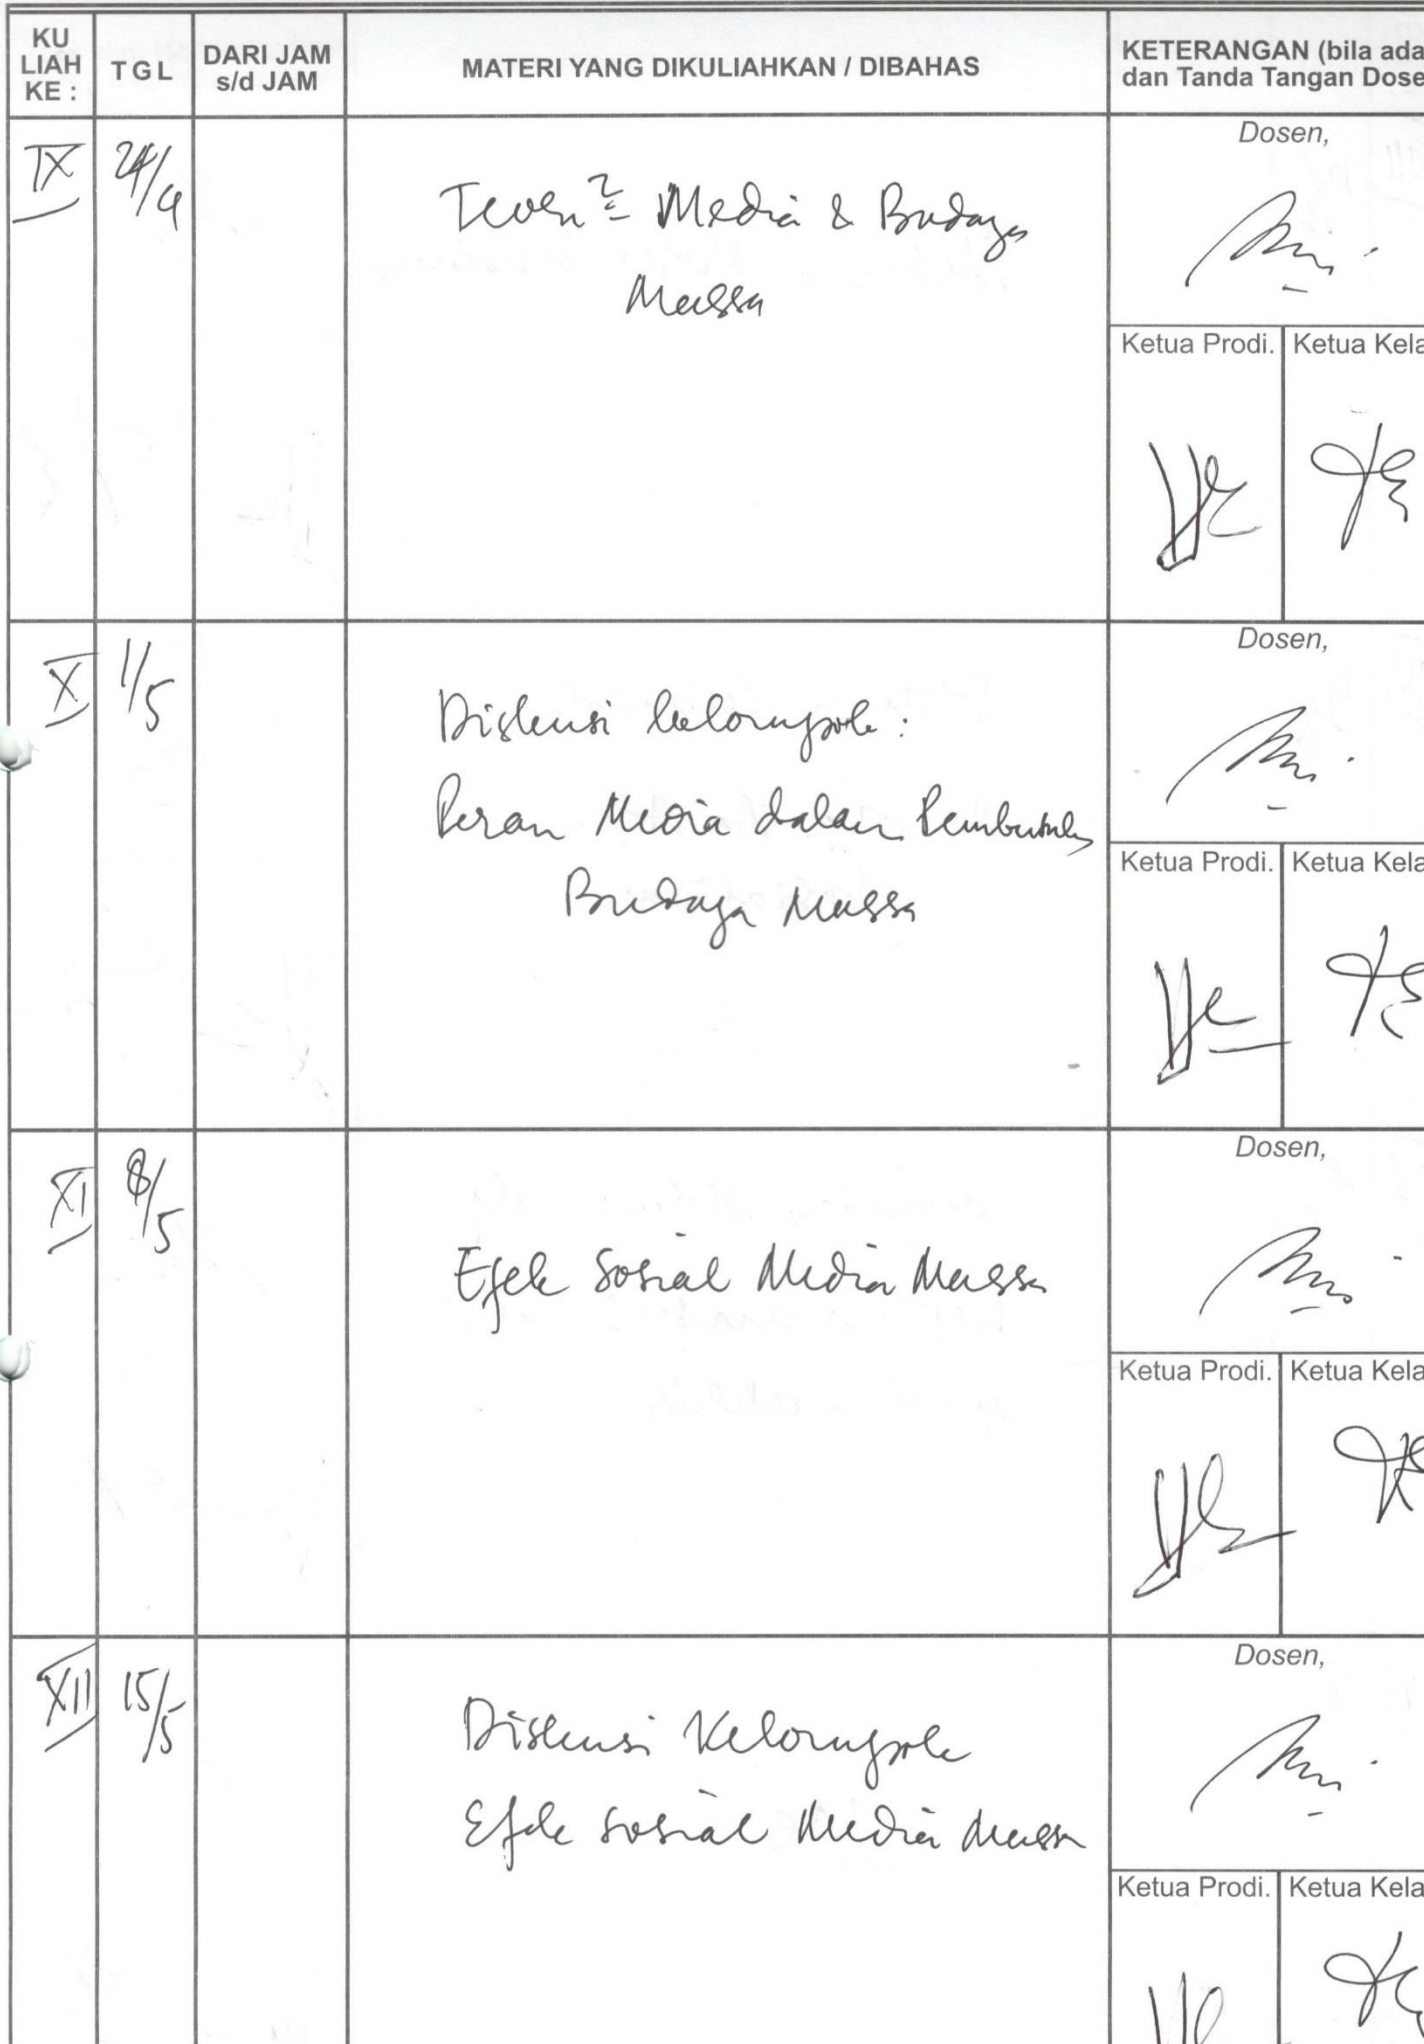 KU LIAH KE :
TGL
DARI JAM s/d JAM
MATERI YANG DIKULIAHKAN / DIBAHAS
KETERANGAN (bila ada
dan Tanda Tangan Dose
IX 24/4
Teori² Media & Budaya
Massa
Dosen,
Ketua Prodi. Ketua Kela
X 1/5
Diskusi kelompok :
Peran Media dalam Pembentukan
Budaya Massa
Dosen,
Ketua Prodi. Ketua Kela
XI 8/5
Efek Sosial Media Massa
Dosen,
Ketua Prodi. Ketua Kela
XII 15/5
Diskusi Kelompok
Efek Sosial Media Massa
Dosen,
Ketua Prodi. Ketua Kela